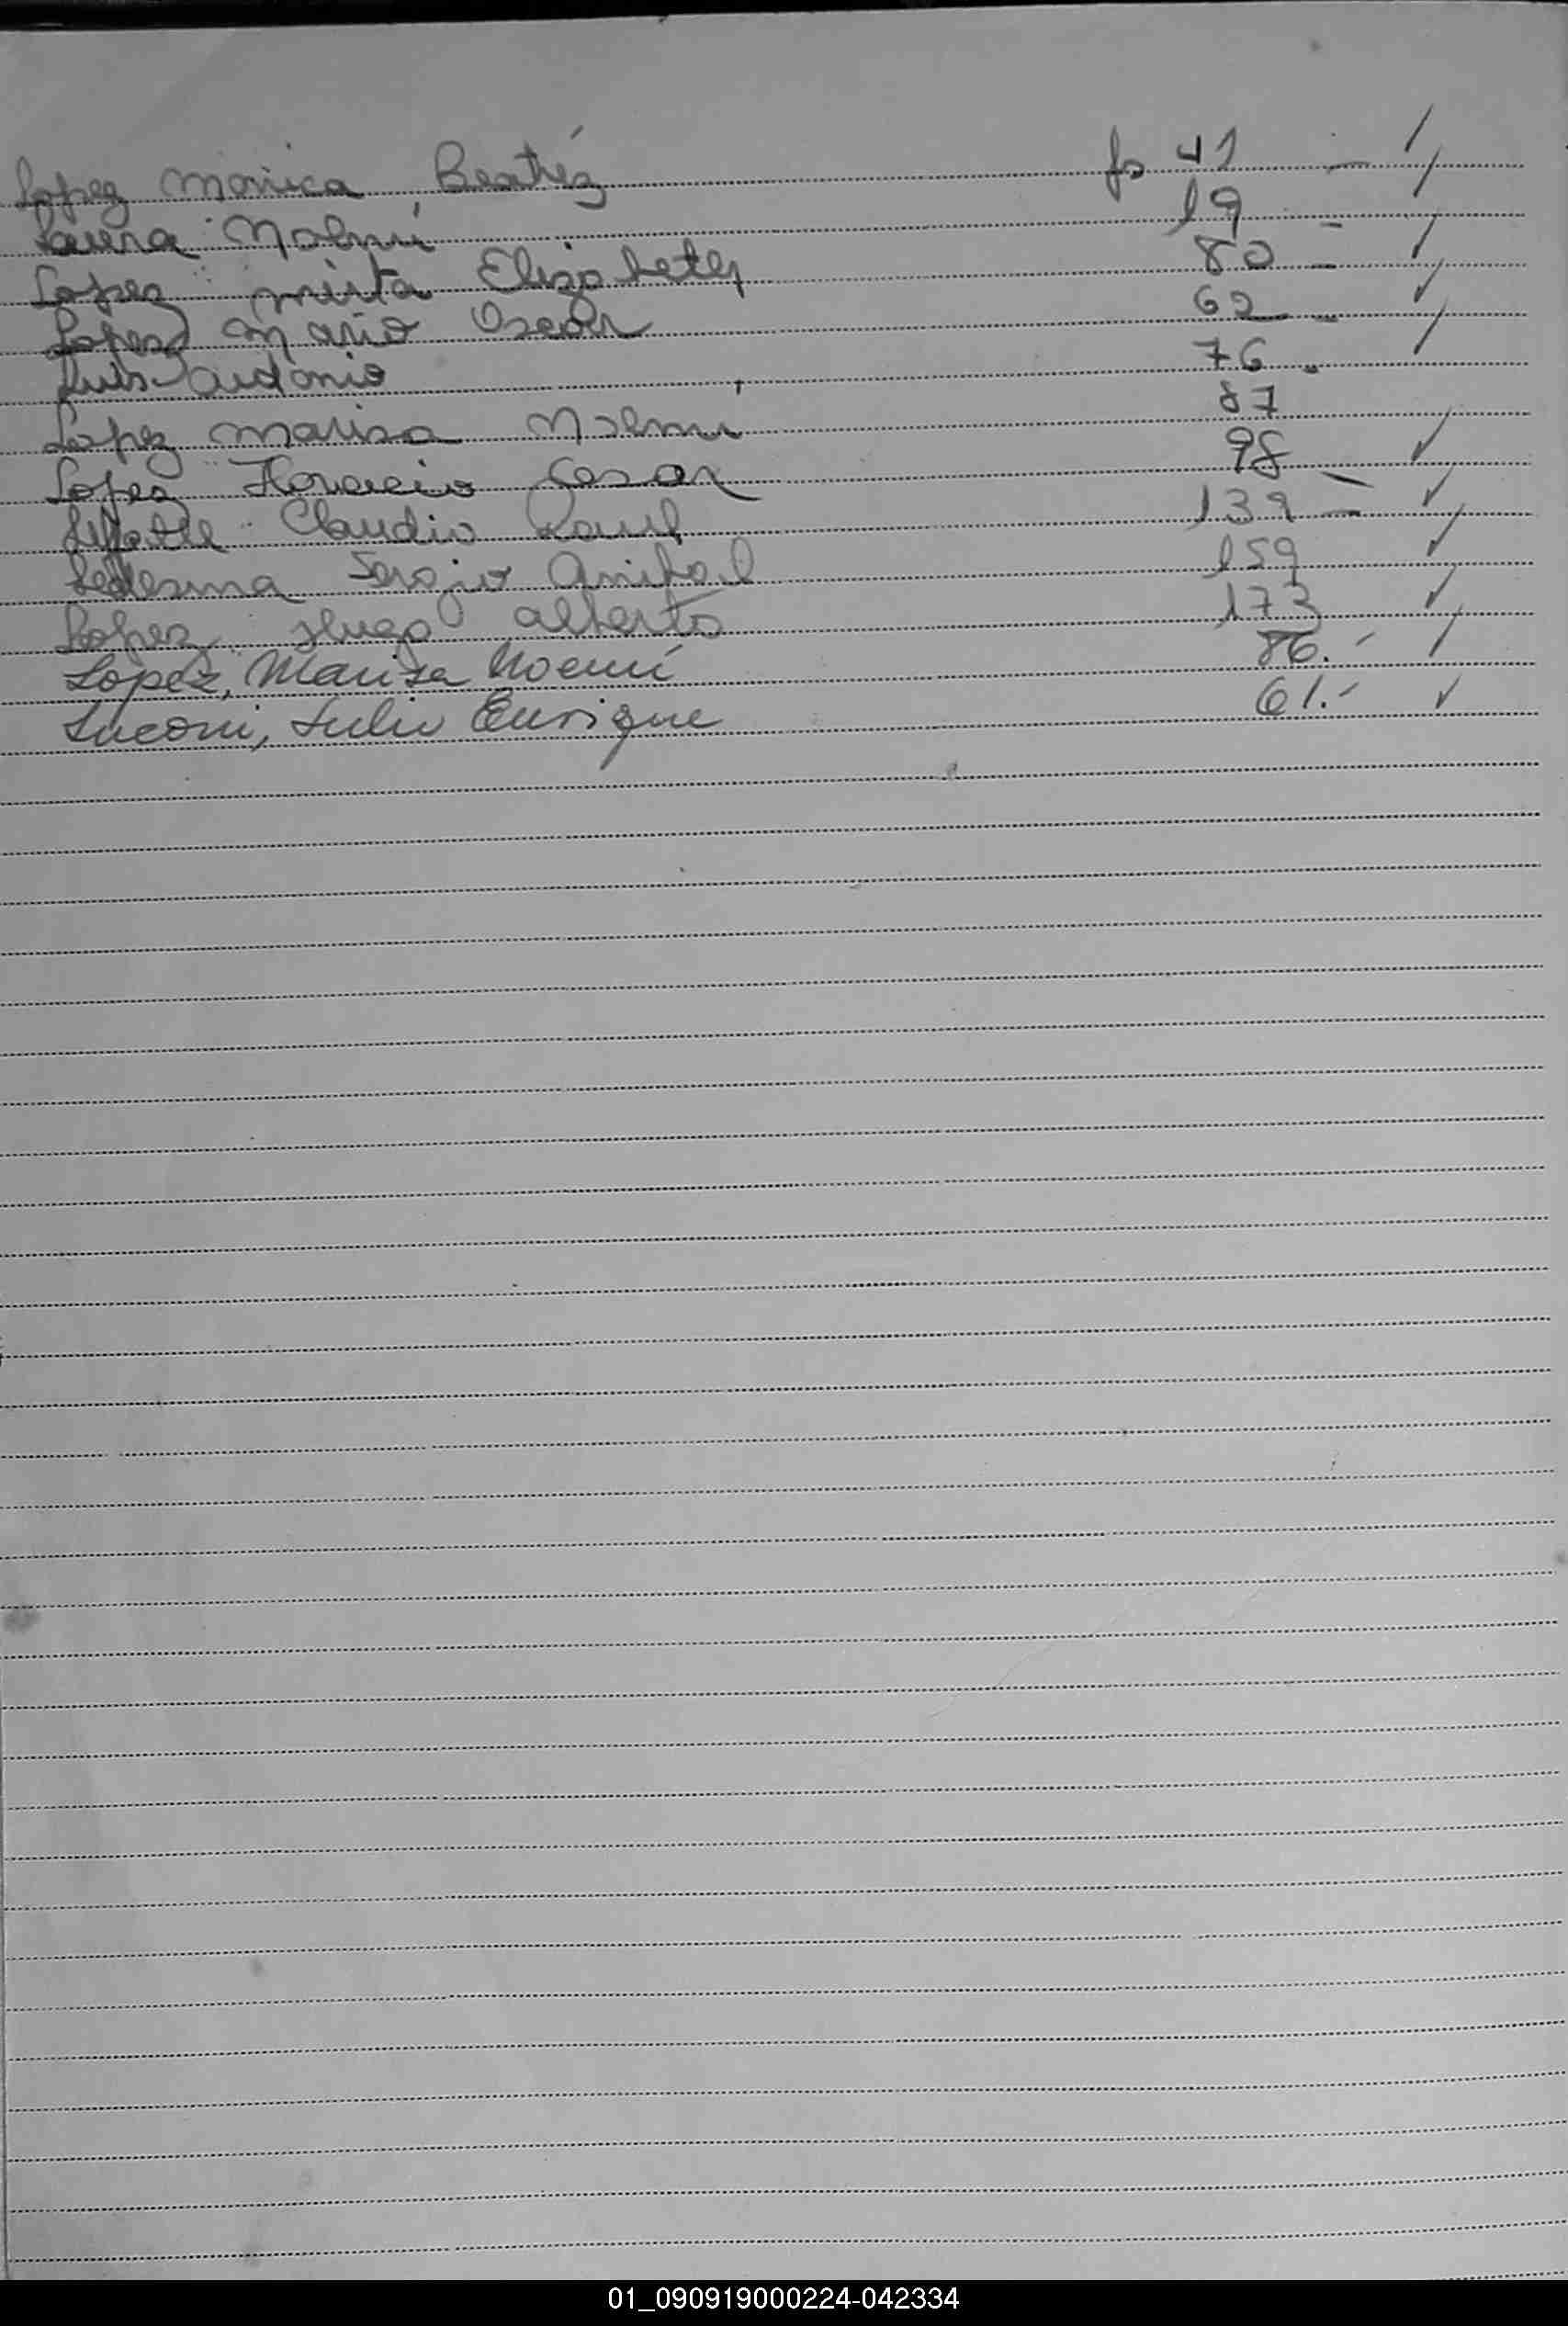 Lopez Monica Beatríz fs 41 —
Laura Noemí 19 —
Lopez Mirta Elizabeth 80 —
Lopez Mario Oscar 62 —
Luis Antonio 76 -
Lopez Marisa Noemí 87
Lopez Horacio Cesar 98 —
Claudio Raul 139 —
Ledesma Sergio Anibal 159
Lopez Hugo Alberto 173
Lopez, Marisa Noemí 86.-
Luconi, Julio Enrique 61.-
01_090919000224-042334